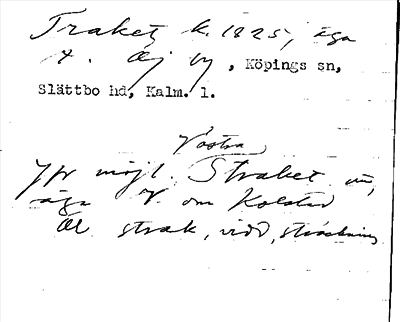 Traket, k. 1825, äga
t. Ej ny, Köpings sn,
Slättbo hd, Kalm. l.
Västra
Jfr möjl. Straket
äga V. om Kolstad
Öl. strak, vidd, sträckning